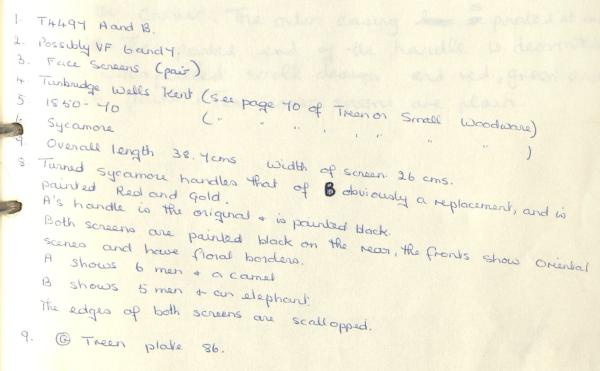 1. T4494 A and B.
2. Possibly VF 6 and 7.
3. Face Screens (pair)
4. Tunbridge Wells Kent (See page 40 of Treen or Small Woodware)
5. 1850-70 ( " " " " " " " " )
6. Sycamore
7. Overall length 38.4cms Width of screen 26 cms.
8. Turned sycamore handles that of B obviously a replacement, and is
painted Red and Gold.
A's handle is the original & is painted black.
Both screens are painted black on the rear, the fronts show Oriental
scenes and have floral borders.
A shows 6 men & a camel
B shows 5 men & an elephant.
The edges of both screens are scallopped.
9. G Treen plate 86.